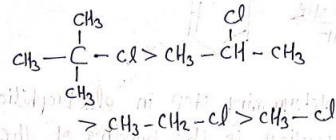 CH₃ Cl
CH₃ — C — Cl > CH₃ — CH — CH₃
CH₃
> CH₃ — CH₂ — Cl > CH₃ — Cl